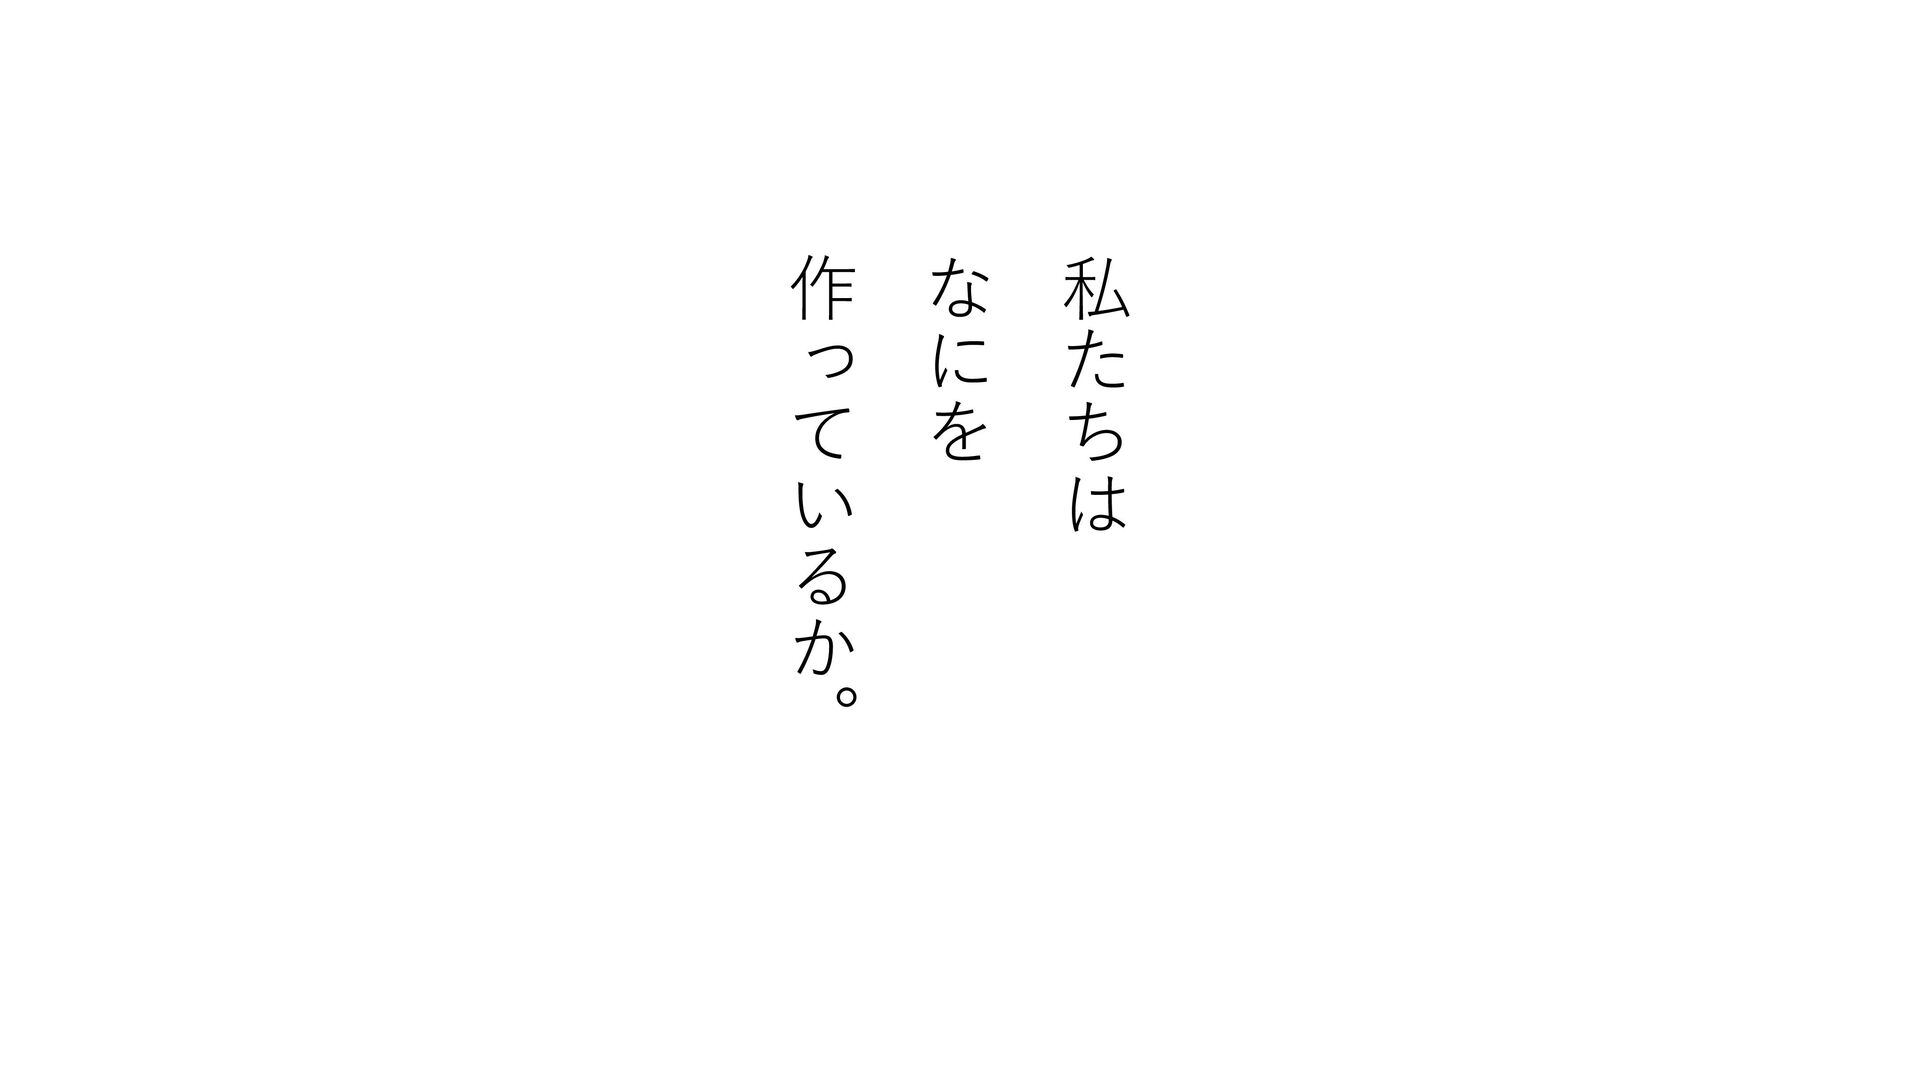 私たちは
なにを
作っているか。